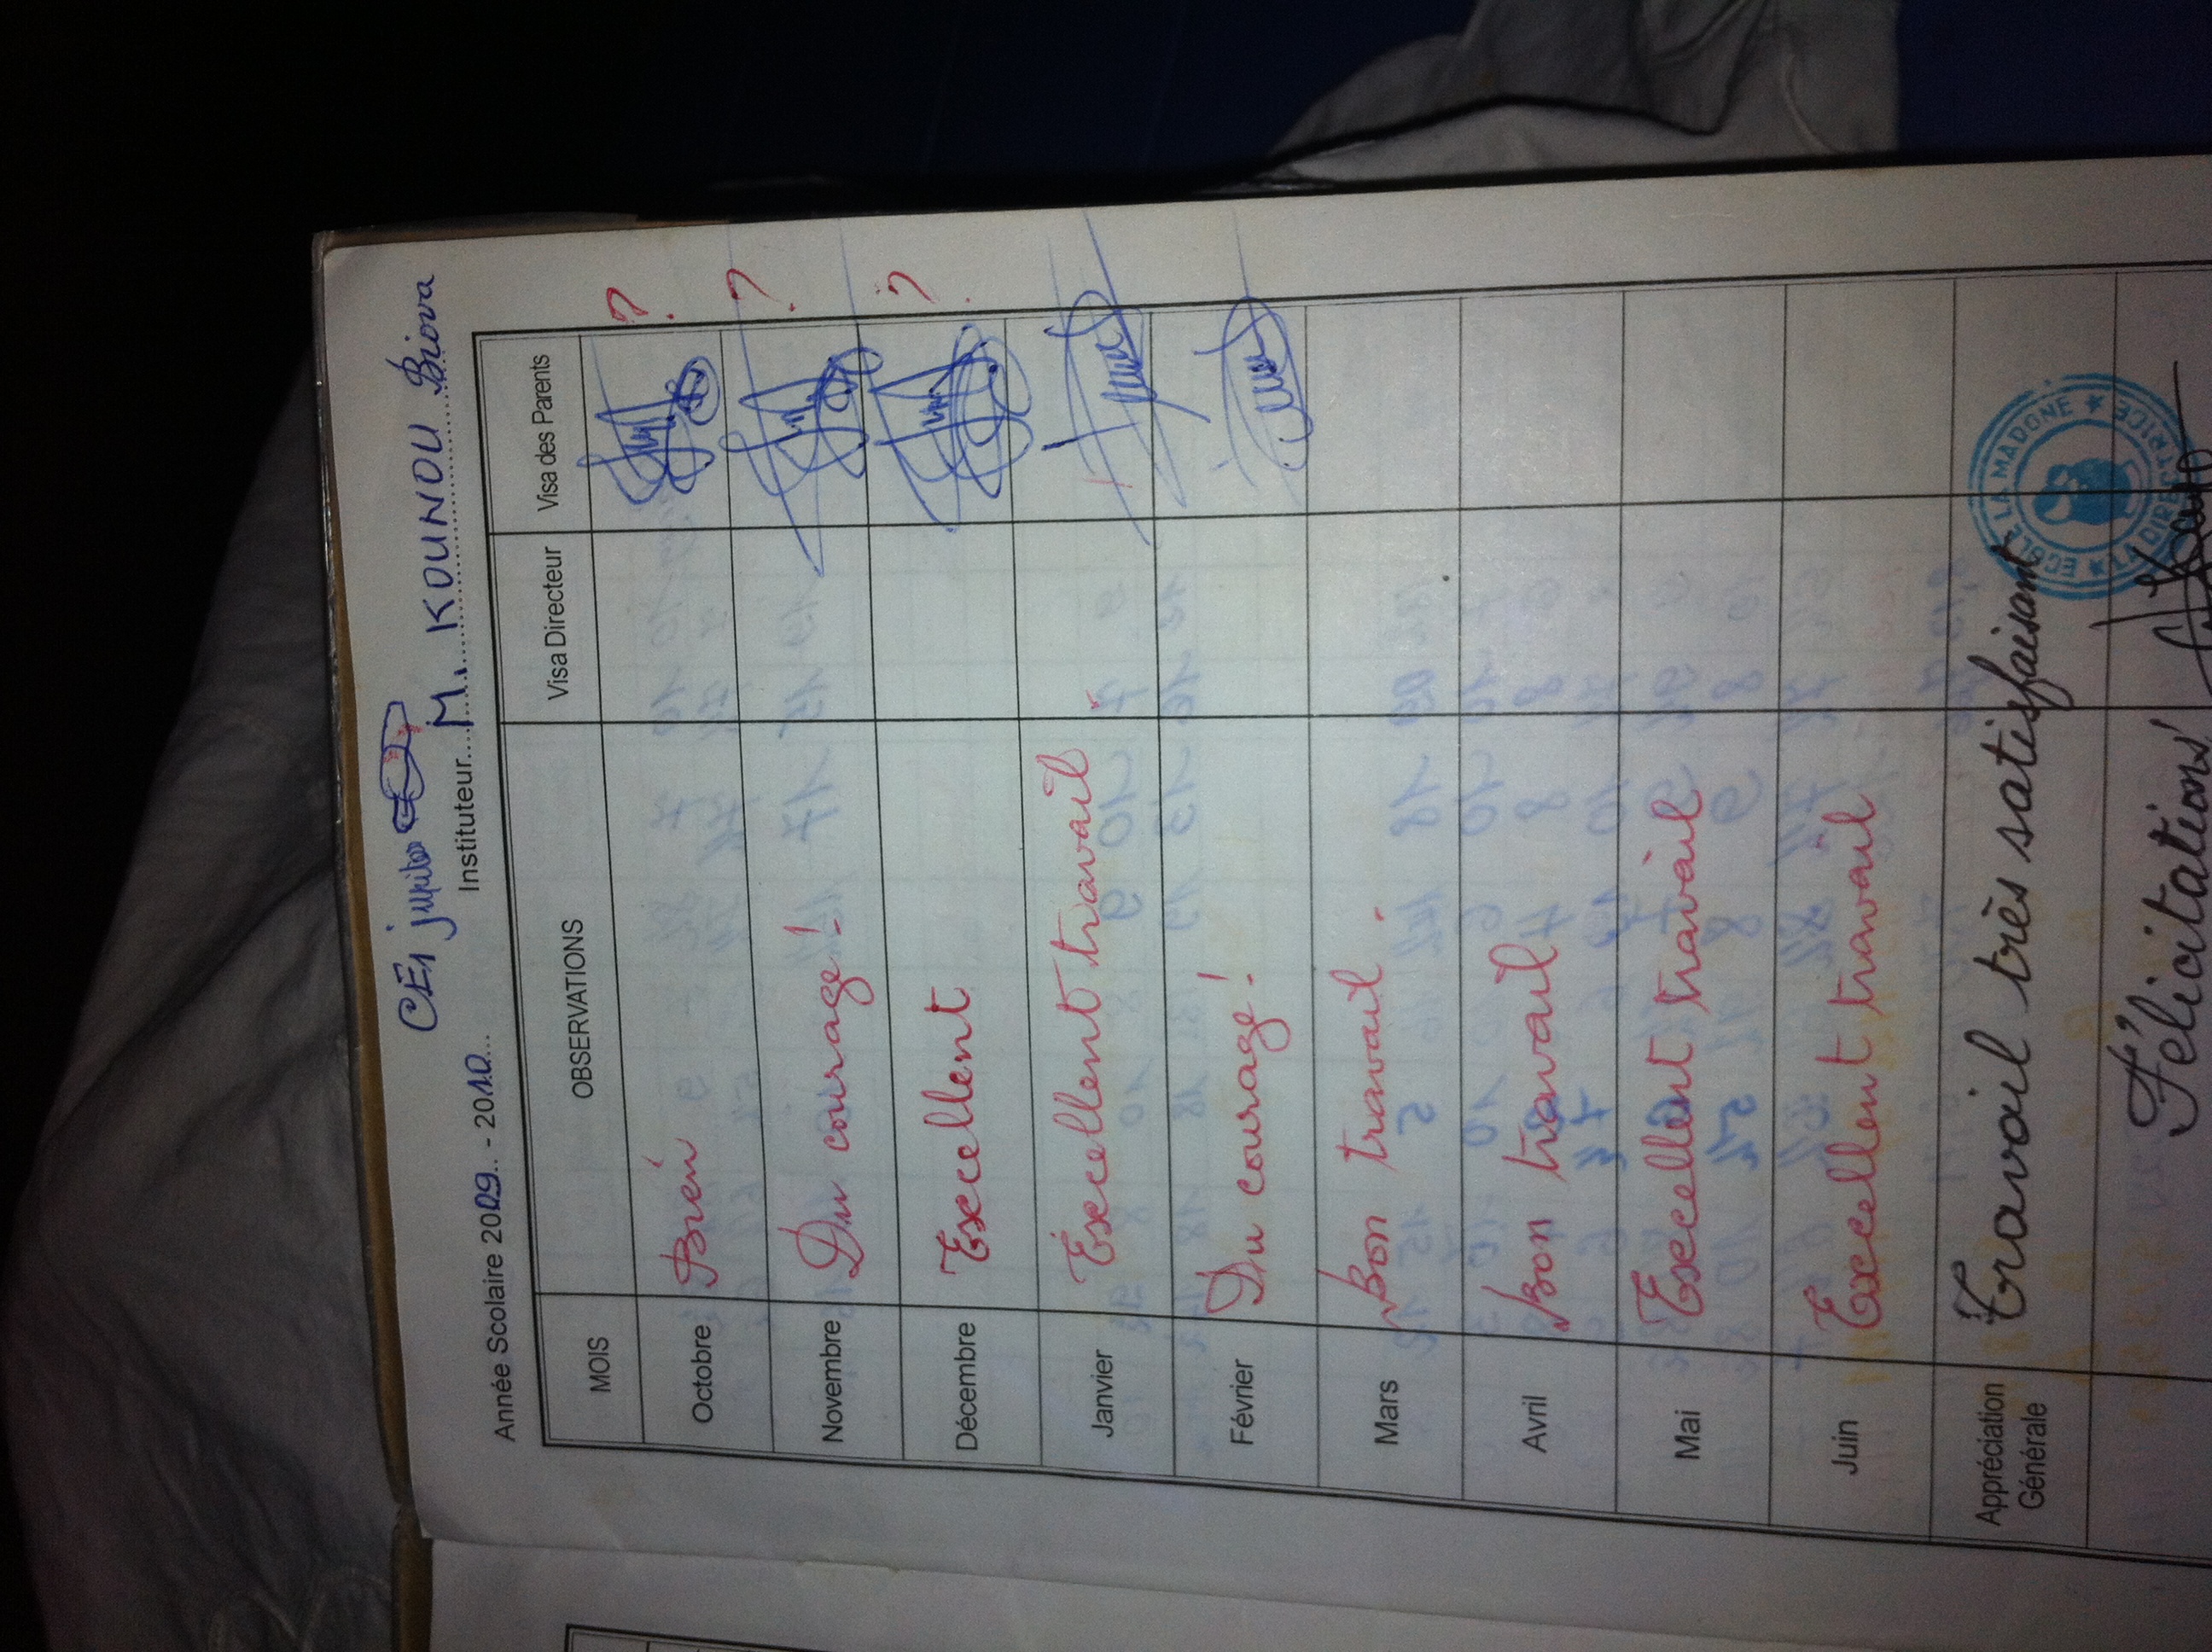 CE1 jupiter
Année Scolaire 2009 - 2010 Instituteur M. KOUNOU Biova
MOIS OBSERVATIONS Visa Directeur Visa des Parents
Octobre Bien ?
Novembre Du courage! ?
Décembre Excellent ?
Janvier Excellent travail.
Février Du courage!
Mars Bon travail.
Avril Bon travail
Mai Excellent travail
Juin Excellent travail
Appréciation Générale Travail très satisfaisant
ECOLE LA MADONE
LA DIRECTRICE
Félicitations!